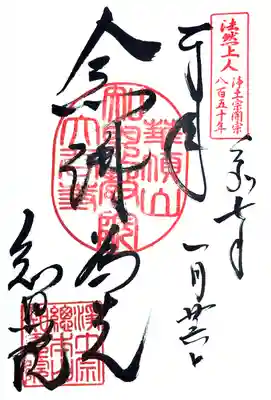 法然上人
浄土宗開宗
八百五十年
奉拝
令和七年
一月
念佛為先
華頂山
知恩教院
大谷寺
知恩院
浄土宗
總本山
知恩院